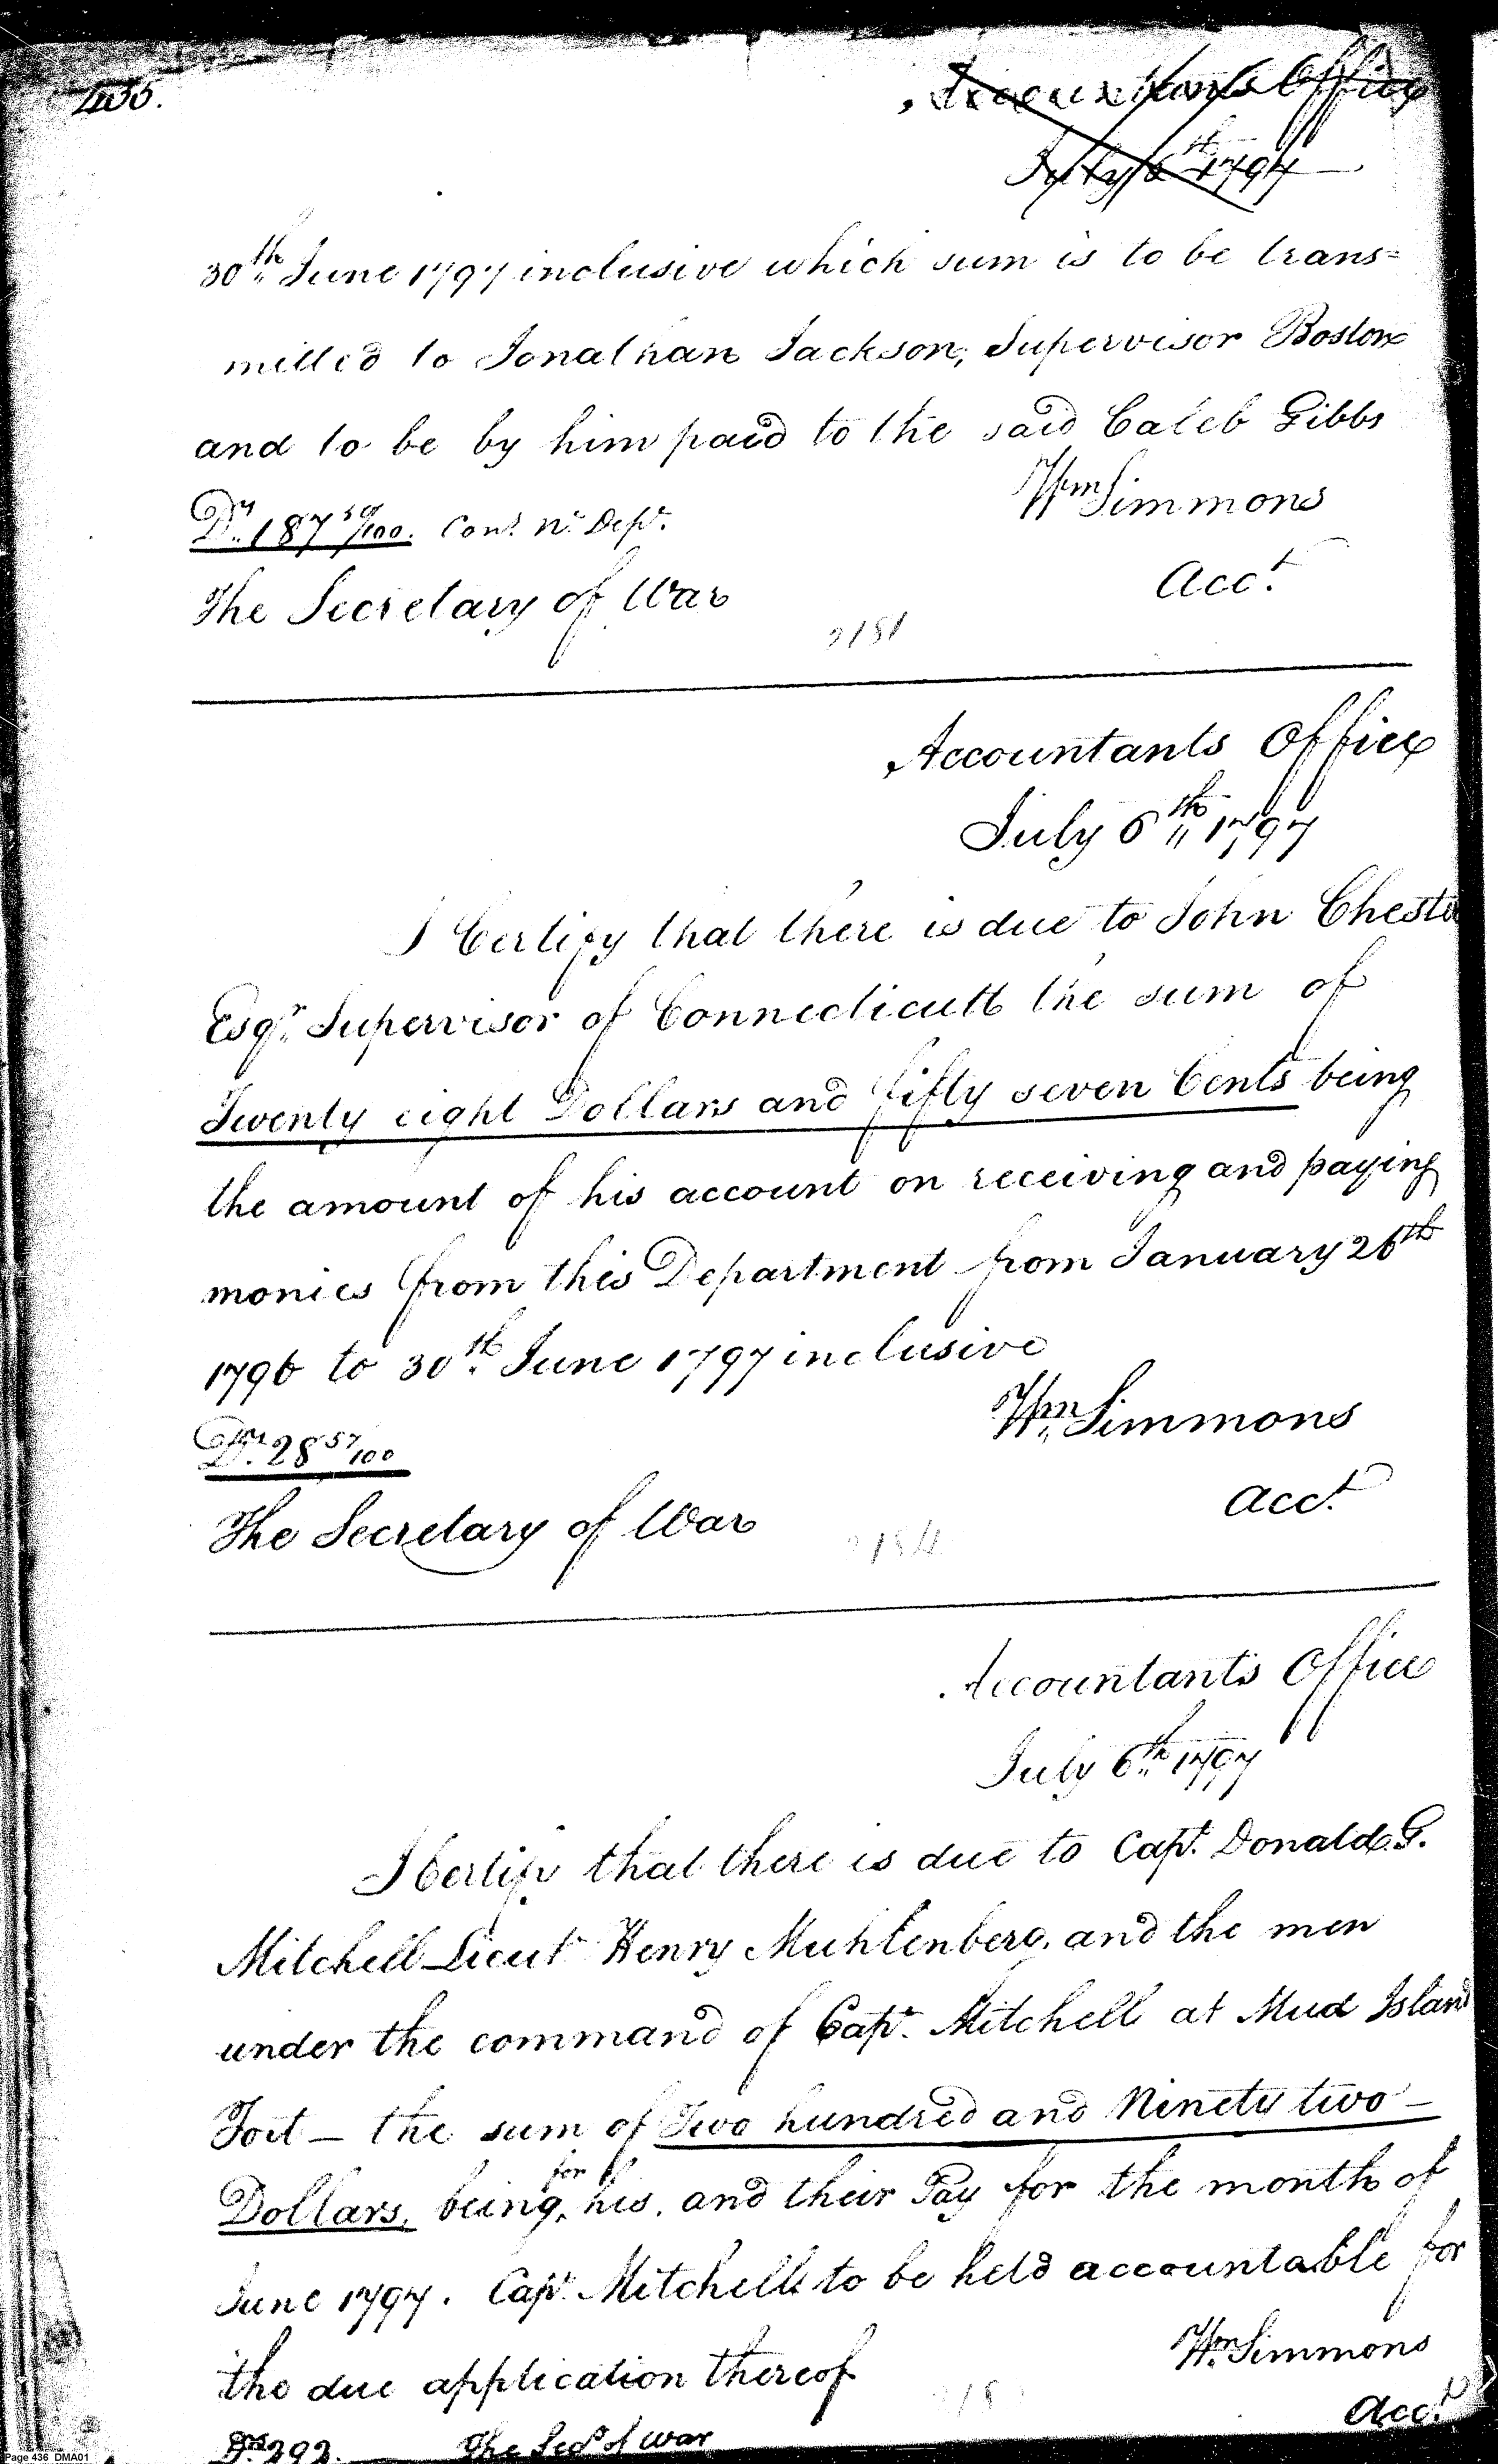 435.
Accountants Office
July 6th 1797
30th June 1797 inclusive which sum is to be trans=
mitted to Jonathan Jackson, Supervisor Boston
and to be by him paid to the said Caleb Gibbs
Wm Simmons
Drs 187 50/100. Cont. Ny. Dept.
Acct.
The Secretary of War
2181
Accountants Office
July 6th 1797
I Certify that there is due to John Cheste
Esqr. Supervisor of Connecticutt the sum of
Twenty eight Dollars and fifty seven Cents being
the amount of his account on receiving and paying
monies from this Department from January 26th
1796 to 30th June 1797 inclusive
Wm Simmons
Drs 28 57/100
Acct.
The Secretary of War
Accountants Office
July 6th 1797
I Certify that there is due to Capt. Donald G.
Mitchell Lieut Henry Muhlenberg, and the men
under the command of Capt. Mitchell at Mud Island
Fort — the sum of Two hundred and Ninety two —
Dollars, being for his, and their Pay for the month of
June 1797. Capt. Mitchell to be held accountable for
the due application thereof
Wm Simmons
Acct.
Drs 292. The Secy of War
Page 436 DMA01